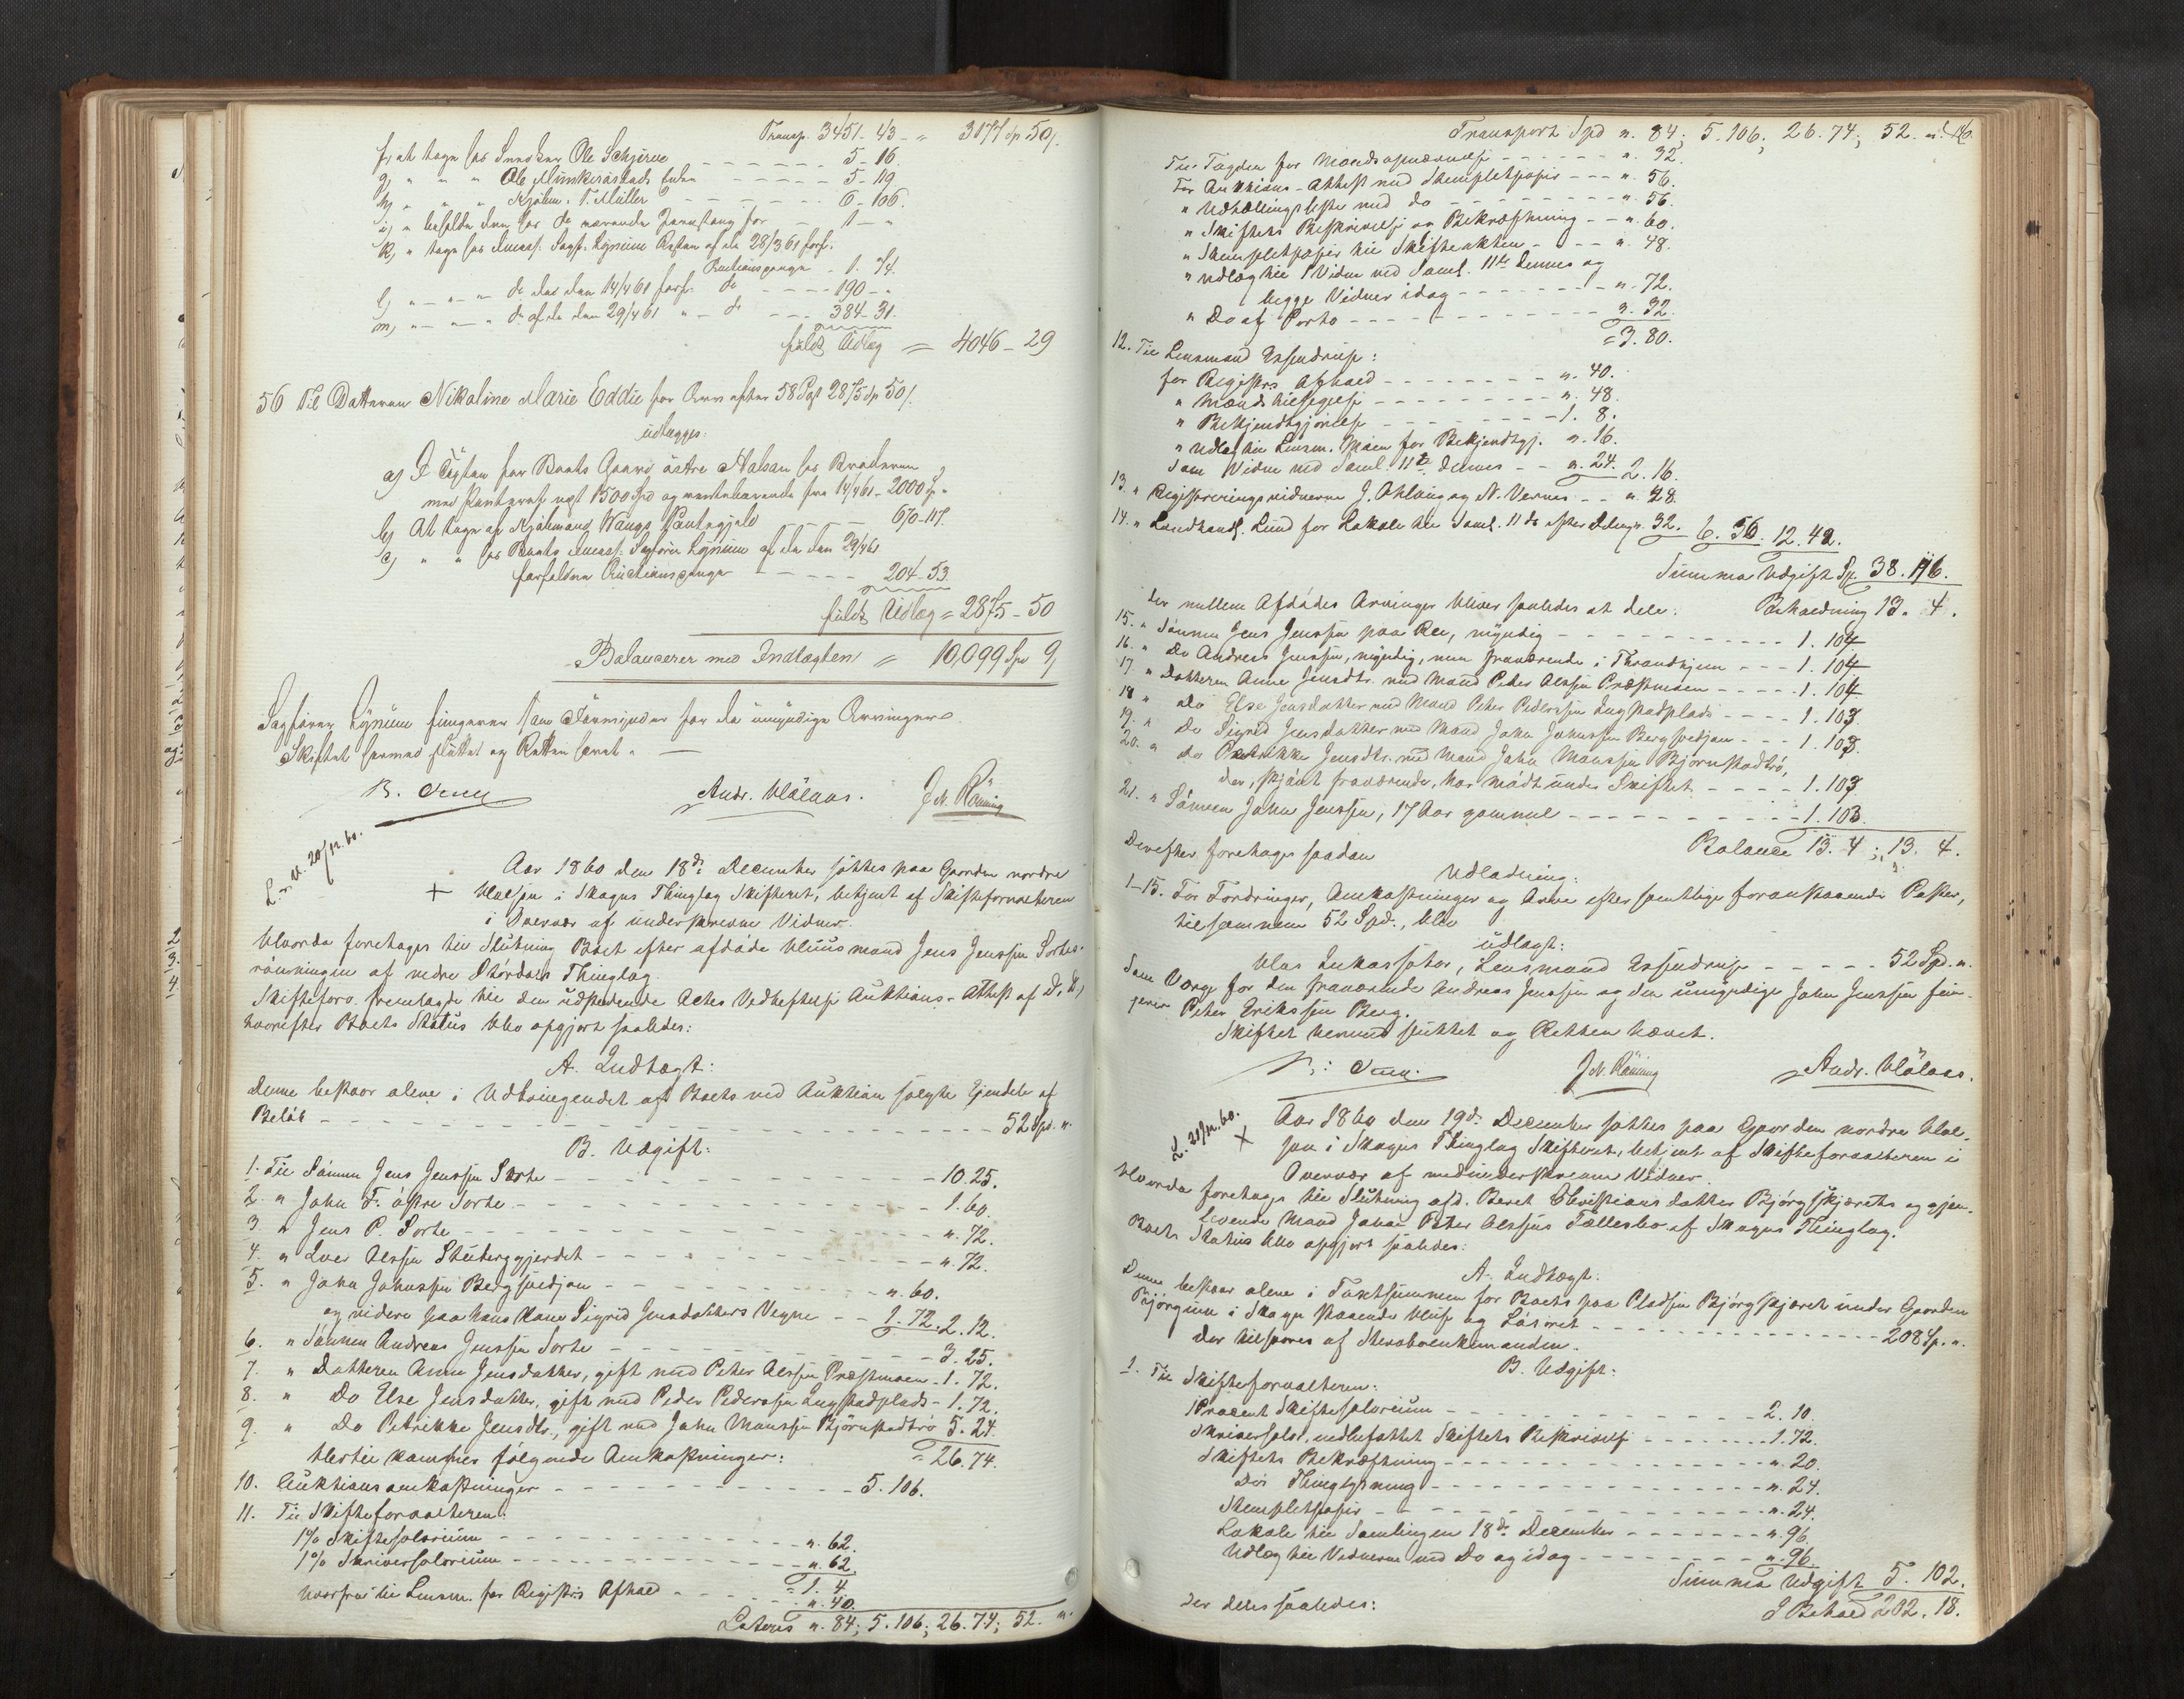 Transp. 3451-43- " 3177 Sp 50/.
f, at tage hos Snedker Ole Schjerve - - - 5-16.
g, " " " Ole Munkeraastads Enke - - - 5-119
h, " " " Kjøbm. T. Müller - - - 6-106.
i, " beholde den hos do værende Jernstang for - 1- "
k, " tage hos Incass. Sagf. Lynum Resten af de 28/3 61 forf.
Auctionspenge - 1. 74.
l, " - " - " do det den 14/4 61 forf. do - - - 190 - "
m, " - " - " do af de den 29/4 61 " - do - - - 384-31.
fuldt Udlæg = 4046-29
56 Til Datteren Nikoline Marie Eddie for Arv efter 58 Post 2875 Sp 50/.
udlægges:
a, I Løsten for Boets Gaard østre Halsan hos Broderen
med Panteret næst 1500 Spd og rentebærende fra 14/4 61 - 2000 Sp "
b, At tage af Kjøbmand Wangs Pantegjeld - - - 670-117.
c, " " hos Boets Incass. Sagfører Lynum af de den 29/4 61
forfaldne Auctionspenge - - - 204-53.
fuldt Udlæg = 2875-50
Balancerer med Indtægten = 10,099 Spd 9,
Sagfører Lynum fungerer som Formynder for de umyndige Arvinger.
Skiftet hermed sluttet og Retten hævet. -
Andr. Hålaas. J. N. Rönning
L. n. U. 20/12. 60.
Aar 1860 den 18de December sattes paa Gaarden nordre
+ Halsan i Skogns Thinglag Skifteret, betjent af Skifteforvalteren
i Overvær af underskrevne Vidner.
Hvorda foretages til Slutning Boet efter afdøde Huusmand Jens Jenssen Sorte-
rønningen af nedre Størdals Thinglag.
Skifteforv. fremlagde til den udstedende Actes Vedheftelse Auktions-Attest af D. D,
hvorefter Boets Status blev opgjort saaledes:
A. Indtægt:
Denne bestaar alene i Udbringendet af Boets ved Auktion solgte Eiendele af
Beløb - - - 52 Spd. ".
B. Udgift:
1. Til Sønnen Jens Jenssen Sorte - - - 10. 25.
2. " John F. østre Sorte - - - 1. 60.
3. " Jens P. Sorte - - - ". 72.
4. " Iver Olssen Stubergjerdet - - - ". 72.
5. " John Johnssen Bergsvedjan - - - ". 60.
og videre paa hans Kone Sigrid Jensdatters Vegne - - 1. 72. 2. 12.
6. " Sønnen Andreas Jenssen Sorte - - - 3. 25.
7. " Datteren Anne Jensdatter, gift med Peter Olssen Præstmoen - 1. 72.
8. " Do Else Jensdatter, gift med Peder Pederssen Lugstadplads - 1. 72.
9. " Do Petrikke Jensdtr., gift med John Monssen Bjørnstadtrø 5. 24.
= 26. 74.
Hertil kommer følgende Omkostninger:
10. Auktionsomkostninger - - - 5. 106.
11. Til Skifteforvalteren:
1% Skiftesalarium - - - ". 62.
1% Skriversalarium - - - ". 62.
= 1. 4.
hvorfra til Lensm. for Registrs Afhold - - - ". 40.
Lateris ". 84; 5. 106; 26. 74; 52. ".
Transport Spd ". 84; 5. 106; 26. 74; 52. ".
Til Fogden for Mandsopnævnelse - - - ". 32.
For Auktions-Attest med Stempletpapir - - - ". 56.
" Udtællingsliste med do - - - ". 56.
" Skiftets Beskrivelse og Bekræftning - - ". 60.
" Stempletpapir til Skifteakten - - - ". 48.
" Udlæg til 1 Vidne ved Saml. 11te dennes og
begge Vidner idag - - - ". 72.
" Do af Porto - - - ". 32.
= 3. 80.
12. Til Lensmand Essendrup:
for Registrs Afhold - - - ". 40.
" Mænds tilsigelse - - - ". 48.
" Bekjendtgjørelse - - - 1. 8.
" Udlæg til Lensm. Moen for Bekjendtgj. ". 16.
Som Vidne ved Saml. 11te dennes - - ". 24. 2. 16.
13. " Registreringsvidnerne J. Okling og N. Vernes - - ". 28.
14. " Landhandl. Lund for Lokale til Saml. 11 ds efter Delingr. 32. 6. 36. 12. 42.
Summa Udgift Sp. 38. 116.
Beholdning 13. 4.
der mellem Afdødes Arvinger bliver saaledes at dele:
15. " Sønnen Jens Jenssen paa Ree, myndig - - - 1. 104
16. " Do Andreas Jenssen, myndig, men fraværende i Throndhjem - - - 1. 104
17 " Datteren Anne Jensdtr. med Mand Peter Olssen Præstmoen - - - 1. 104
18 " Do Else Jensdatter med Mand Peter Pederssen Lugstadplads - - - 1. 103.
19. " Do Sigrid Jensdatter med Mand John Johnssen Bergsvedjan - - - 1. 103.
20. " Do Petrikke Jensdtr. med Mand John Monssen Bjørnstadtrø,
der, skjønt fraværende, har mødt under Skiftet - - - 1. 103
21. " Sønnen John Jenssen, 17 Aar gammel - - - 1. 103.
Balance 13. 4; 13. 4.
Derefter foretoges saadan
Udlodning:
1-15. For Fordringer, Omkostninger og Arve efter samtlige foranstaaende Poster,
tilsammen 52 Spd., blev
udlagt:
Hos Inkassator, Lensmand Essendrup - - - 52 Spd. ".
Som Værge for den fraværende Andreas Jenssen og den umyndige John Jenssen fun-
gerer Peter Erikssen Berg.
Skiftet hermed sluttet og Retten hævet.
J. N. Rönning Andr. Hålaas.
L. 21/12. 60.
Aar 1860 den 19de December sattes paa Gaarden nordre Hal-
X san i Skogns Thinglag Skifteret, betjent af Skifteforvalteren i
Overvær af medunderskrevne Vidner.
Hvorda foretoges til Slutning afd. Beret Christiansdatter Bjørgskjærets og gjen-
levende Mand Johan Peter Olssens Fællesbo af Skogns Thinglag.
Boets Status blev opgjort saaledes:
A. Indtægt:
Denne bestaar alene i Taxtsummen for Boets paa Pladsen Bjørgskjæret under Gaarden
Bjørgum i Skogn staaende Huse og Løsøret - - - 208 Sp. ".
der tilsvares af Sterboenkemanden.
B. Udgift:
1. Til Skifteforvalteren:
1 Procent Skiftesalarium - - - 2. 10.
Skriversalar. indbefattet Skiftets Beskrivelse - - - 1. 72.
Skiftets Bekræftning - - - ". 20.
Dos Thinglysning - - - ". 24.
Stempletpapir - - - ". 24.
Lokale til Samlingen 18de December - - - ". 96.
Udlæg til Vidnerne ved Do og idag - - - ". 96.
Summa Udgift 5. 102.
I Behold 202. 18.
der deles saaledes: